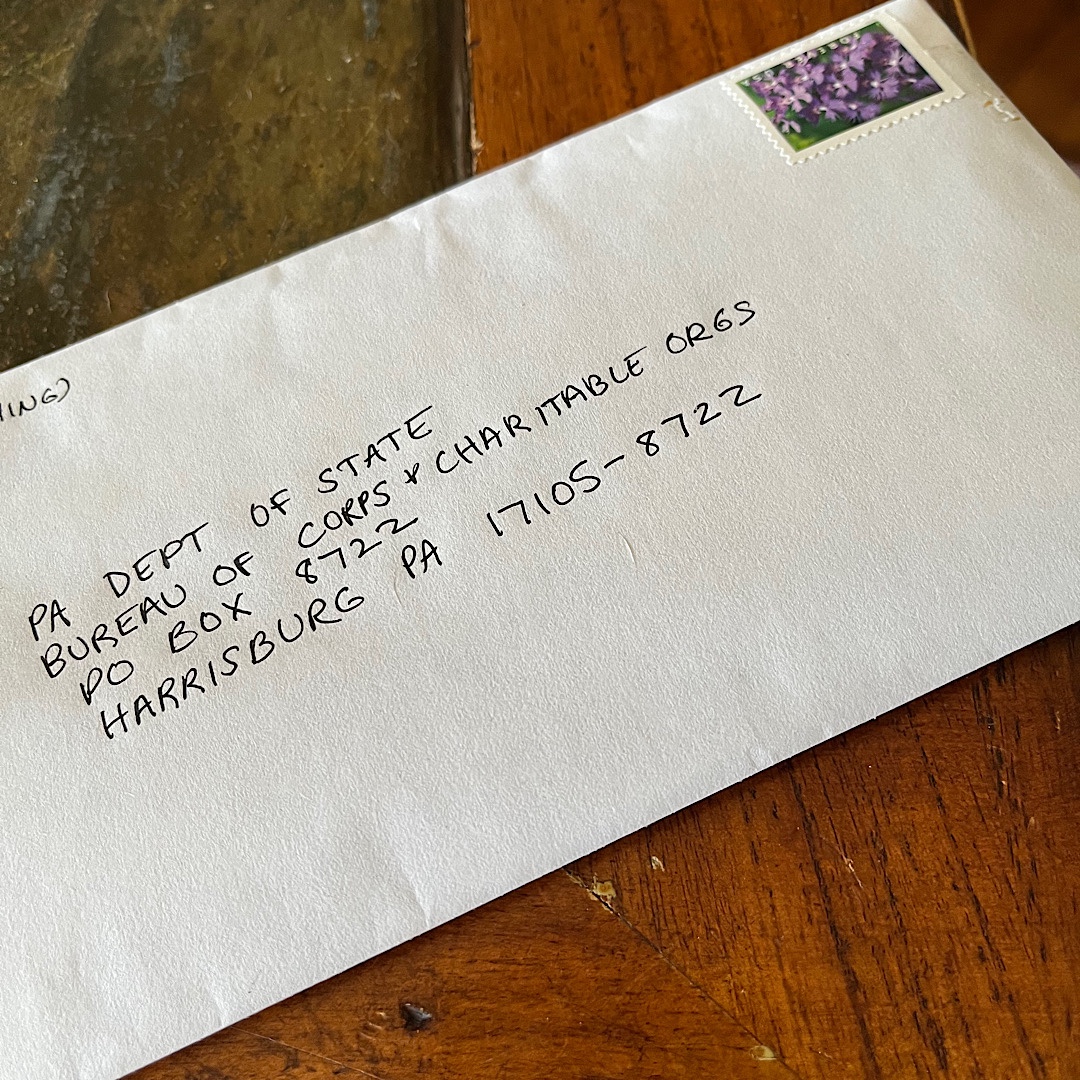 PA DEPT OF STATE
BUREAU OF CORPS & CHARITABLE ORGS
PO BOX 8722
HARRISBURG PA 17105-8722